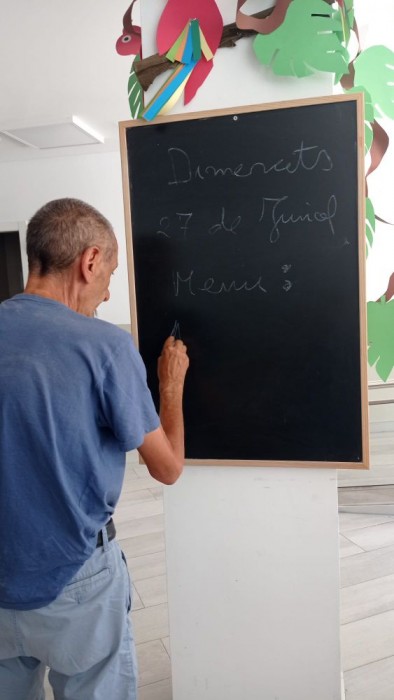 Dimecrets
27 de Juniol
Menu: